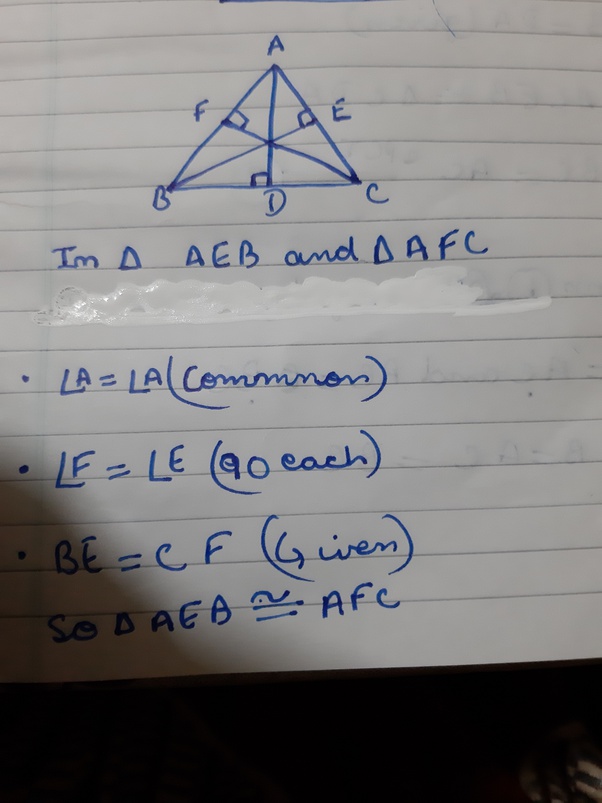 A
F E
B D C
In Δ AEB and Δ AFC
• ∠A = ∠A (Commmon)
• ∠F = ∠E (90 each)
• BE = CF (Given)
So Δ AEB ≅ AFC